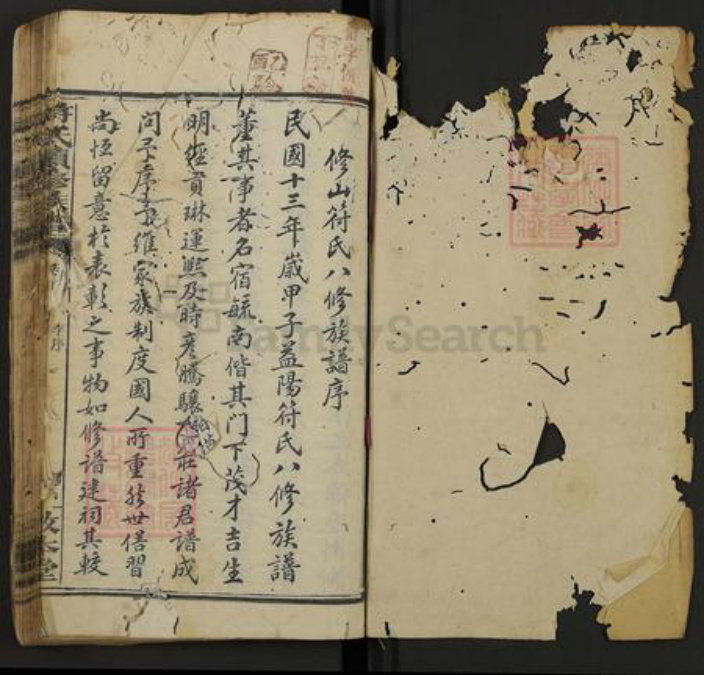 修山符氏八修族譜序
民國十三年歲甲子益陽符氏八修族譜
董其事者名宿毓南偕其門下茂才吉生
明經貢琳運熙及時彥騰驤 莊諸君譜成
问予序予維家族制度國人所重然世俗習
尚恒留意於表彰之事物如修譜建祠其較
李序
敦本堂
FamilySearch